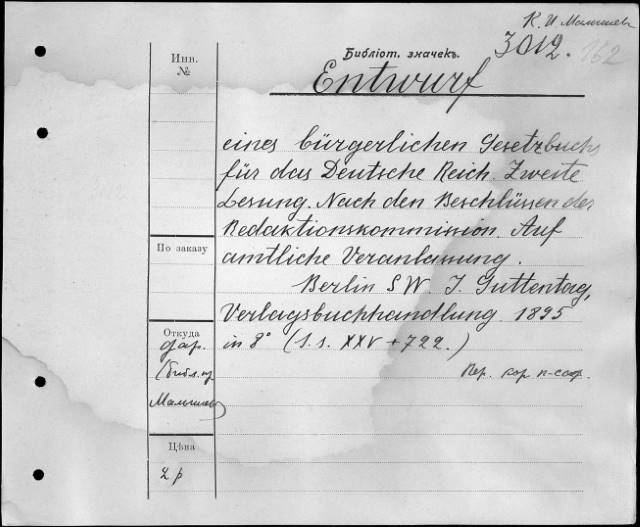 К. И. Малышев
3012. 162
Инв.
№
Библіот. значекъ.
Entwurf
eines bürgerlichen Gesetzbuchs
für das Deutsche Reich. Zweite
Lesung. Nach den Beschlüssen der
Redaktionskommission. Auf
amtliche Veranlassung.
По заказу
Berlin SW J. Guttentag,
Verlagsbuchhandlung 1895
Откуда
дар.
in 8° (S.s. XXV + 722.)
Пер. кор
Малышев
Цѣна
2 р